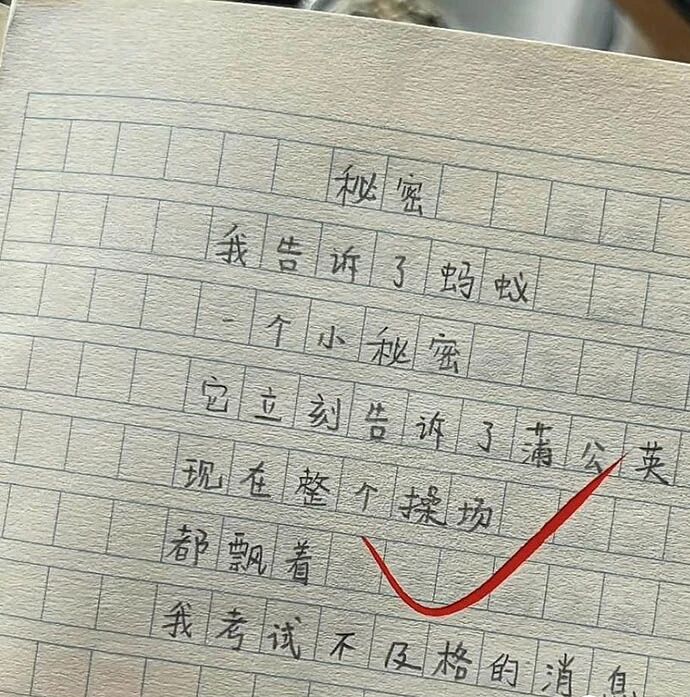 秘密
我告诉了蚂蚁
一个小秘密
它立刻告诉了蒲公英
现在整个操场
都飘着
我考试不及格的消息